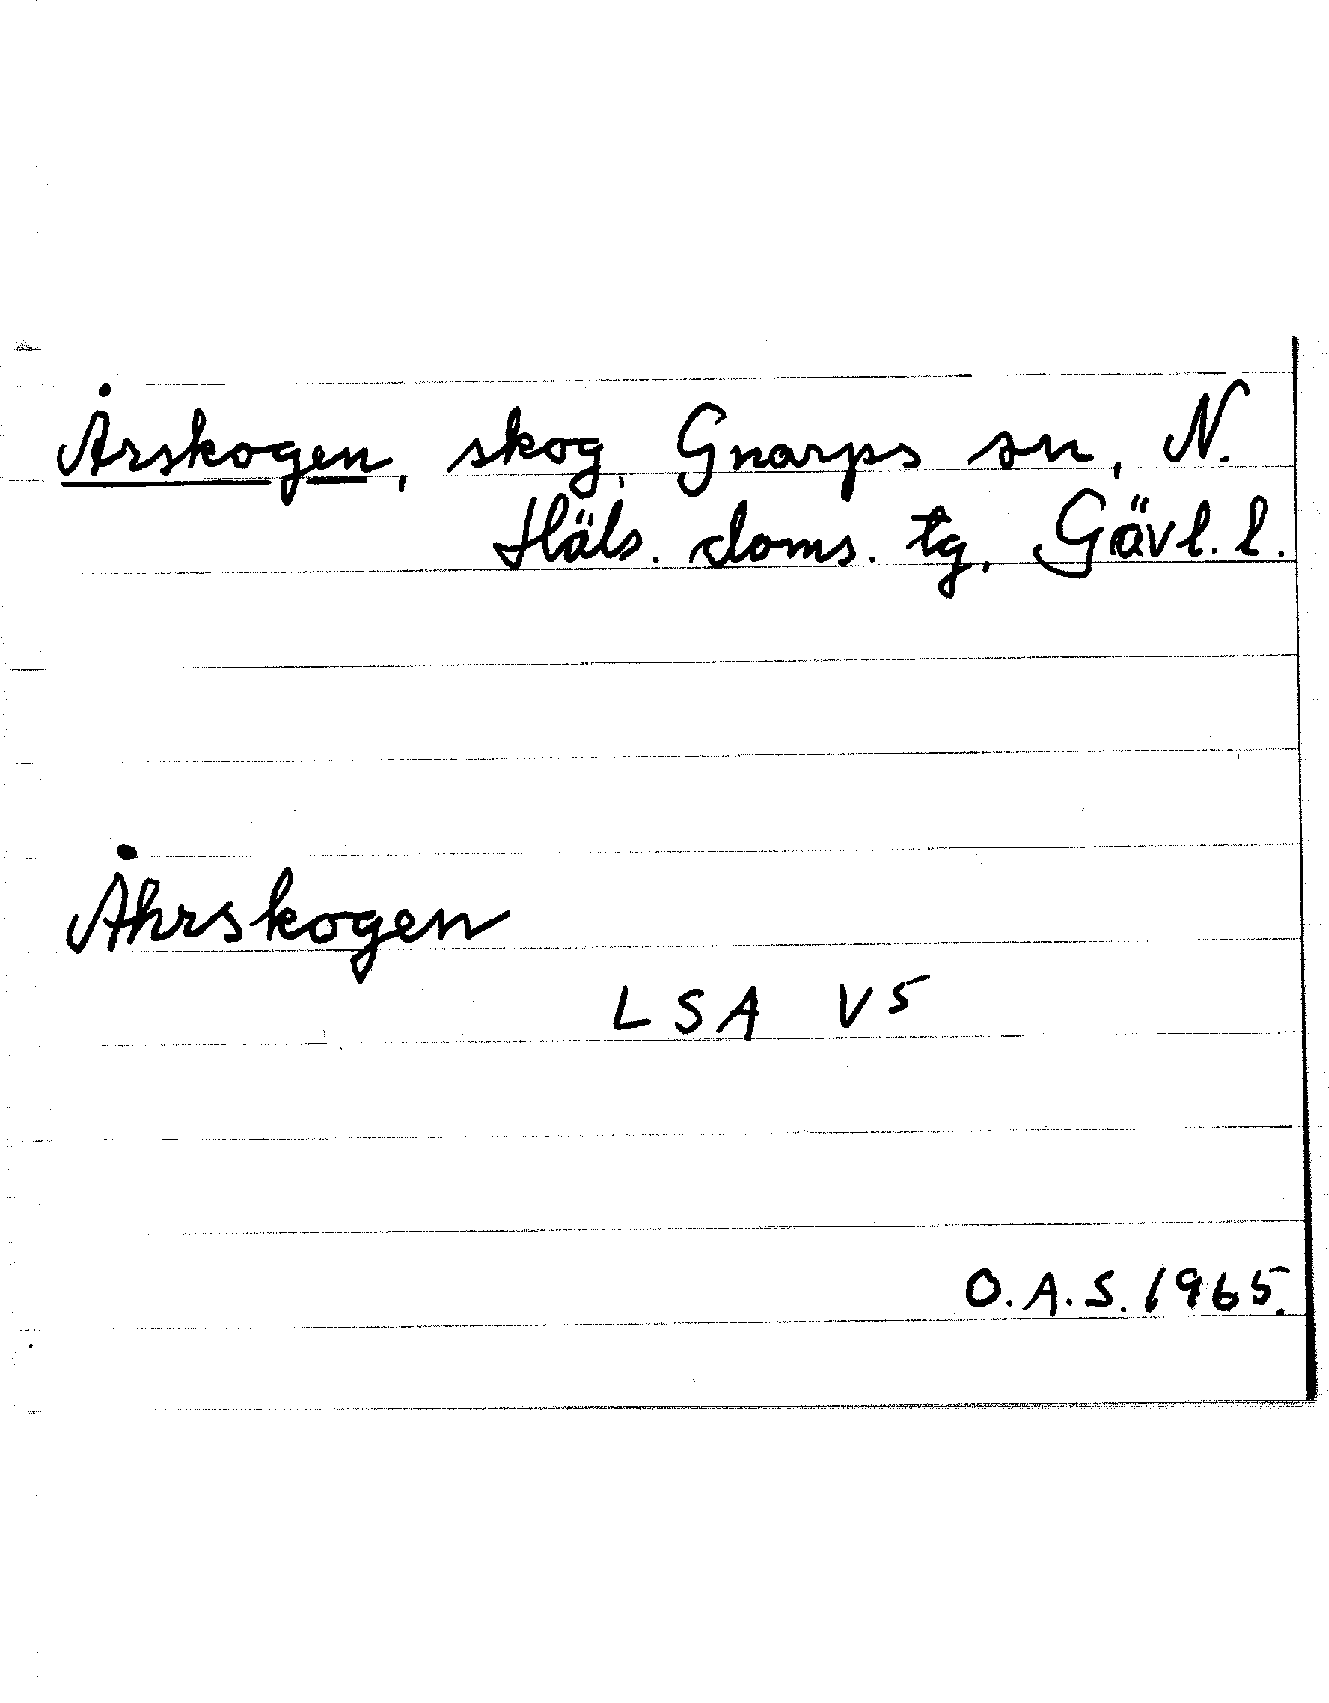 Årskogen, skog, Gnarps sn, N.
Häls. doms. tg, Gävl. l.
Åhrskogen
LSA V5
O.A.S. 1965.